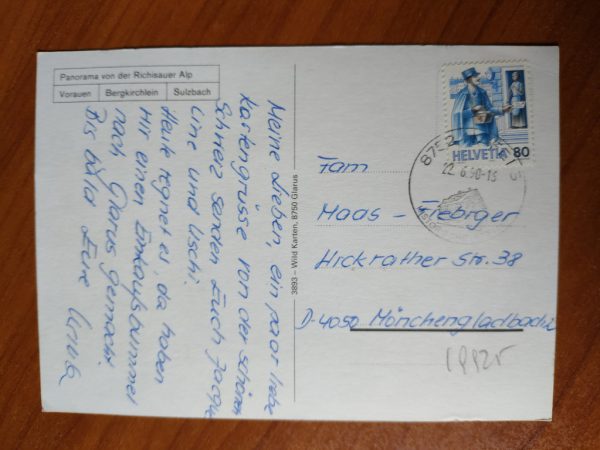 Panorama von der Richisauer Alp
Vorauen Bergkirchlein Sulzbach
Meine Lieben, ein paar liebe
Kartengrüsse von der schönen
Schweiz senden Euch
Line und Uschi.
Heute regnet es, da haben
wir einen Einkaufsbummel
nach Glarus gemacht
Bis bald Eure
3893 – Wild Karten, 8750 Glarus
HELVETIA 80
22.6.90-15
Fam
Maas - Frebriger
Hickrather Str. 38
D-4050 Mönchengladbach